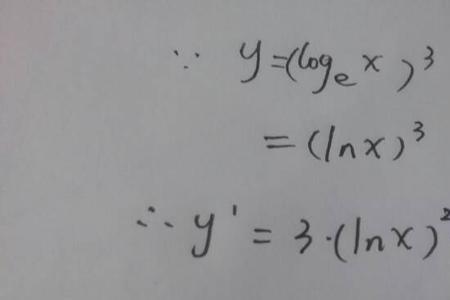 ∵ y=(logₑx)³
=(lnx)³
∴ y'=3·(lnx)²